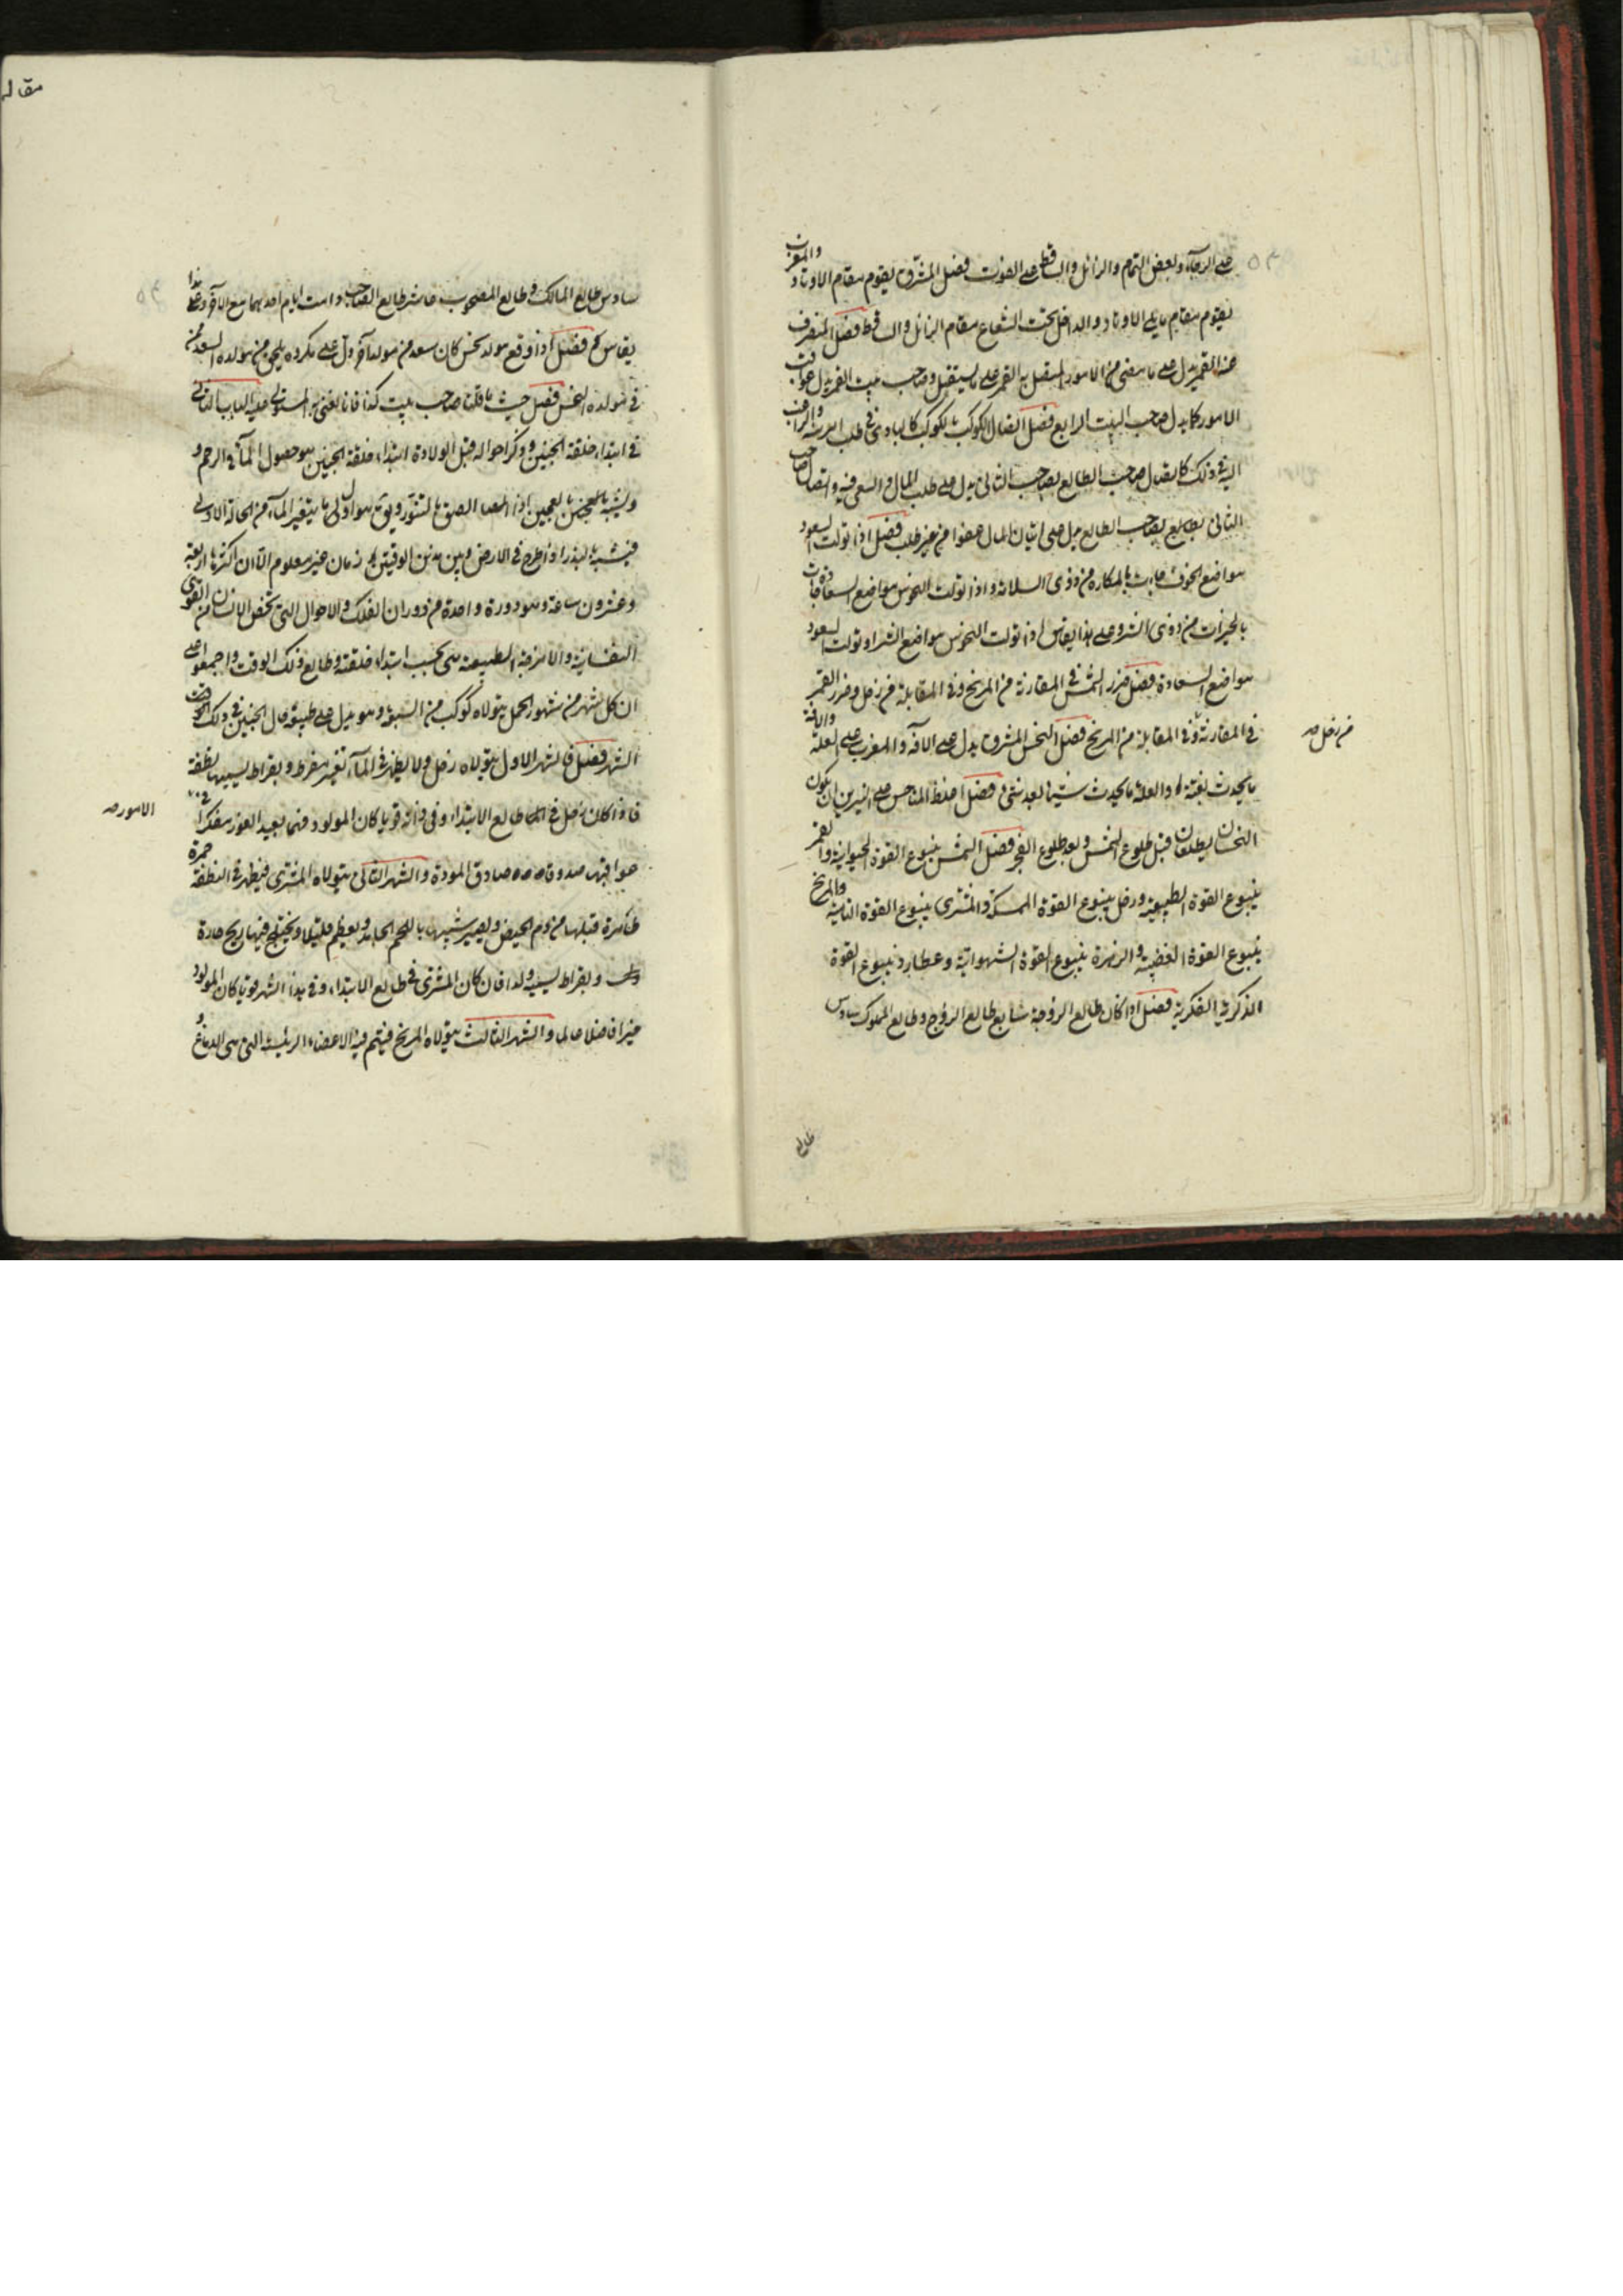 على الرجاء وبعض التمام والزائل والساقط على الفوت فصل المشرق يقوم مقام الاوتاد والمغرب
يقوم مقام ما يلي الاوتاد والداخل تحت الشعاع مقام الزائل والساقط فصل المنصرف
عنه القمر يدل على ما مضى من الامور المتصل به القمر على ما يستقبل وصاحب بيت القمر يدل على عواقب
الامور كما يدل صاحب البيت الرابع فصل اتصال الكوكب بالكوكب كالبادى في طلب
اليه في ذلك كاتصال صاحب الطالع بصاحب الثاني يدل على طلب المال والسعى فيه واتصال صاحب
الثاني بصاحب الطالع يدل على اتيان المال عفوا من غير طلب فصل اذا تولت السعود
مواضع الخوف جاءت بالمكاره من ذوى السلامة واذا تولت النحوس مواضع السعادة جاءت
بالخيرات من ذوى الشر وعلى هذا يقاس اذا تولت النحوس مواضع الشر او تولت السعود
مواضع السعادة فصل ضرر الشمس في المقارنة من المريخ وفي المقابلة من زحل وضرر القمر
في المقارنة وفي المقابلة من المريخ فصل النحس المشرق يدل على الآفة والمغرب على العلة والآفة
من زحل صه
ما يحدث بغتة والعلة ما يحدث شيئا بعد شئ فصل اغلظ المناحس على النيرين ان يكون
النحسان يطلعان قبل طلوع الشمس وبعد طلوع القمر فصل الشمس ينبوع القوة الحيوانية والقمر
ينبوع القوة الطبيعية وزحل ينبوع القوة الممسكة والمشترى ينبوع القوة النامية والمريخ
ينبوع القوة الغضبية والزهرة ينبوع القوة الشهوانية وعطارد ينبوع القوة
الذكرية الفكرية فصل اذا كان طالع الزوجة سابع طالع الزوج وطالع المملوك سادس
طالع
مقاله
سادس طالع المالك وطالع المصحوب عاشر طالع الصاحب دامت ايام احدهما مع الآخر وعلى هذا
يقاس فصل اذا وقع مولد نحس كان سعد من مولد آخر دل على مكروه يلحق من مولده السعد ممن
في مولده النحس فصل حيث ما قلنا صاحب بيت كذا فانا نعنى به المستولى عليه الباب الثاني
في ابتداء خلقة الجنين وذكر احواله قبل الولادة ابتداء خلقة الجنين هو حصول الماء في الرحم و
ويشبه بالعجين اذا الصق بالتنور وهو اول ما يتغير الماء من الحالة الاولى
فيشبه بالبذر اذا طرح في الارض وبين هذين الوقتين زمان غير معلوم الا ان اكثرها اربعة
وعشرون ساعة وهو دورة واحدة من دوران الفلك والاحوال التي تخص الانسان من القوى
النفسانية والامزجة الطبيعية هي بحسب ابتداء خلقته وطالع ذلك الوقت واجمعوا على
ان كل شهر من شهور الحمل يتولاه كوكب من السبعة وهو يدل على طبيعة حال الجنين في ذلك الوقت
الشهر فصل فالشهر الاول يتولاه زحل ولا يظهر في الماء تغير مفرط وبقراط يسميها نطفة
فاذا كان زحل في طالع الابتداء وفي ذاته قويا كان المولود فهما بعيد الغور مفكرا في
الامور صه
عواقبها صدوقا صادق المودة والشهر الثاني يتولاه المشترى فيظهر في النطفة حمرة
ظاهرة قبلها من دم الحيض ويصير شبيها باللحم الجامد ويعظم قليلا ويجتمع فيها ريح حارة
وبقراط يسميه ولدا فان كان المشترى في طالع الابتداء وفي هذا الشهر قويا كان المولود
خيرا فاضلا عالما والشهر الثالث يتولاه المريخ فيتم فيه الاعضاء الرئيسة التي هي الدماغ و